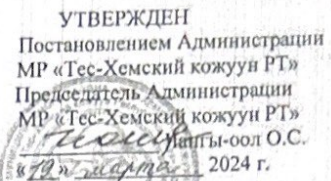 УТВЕРЖДЕН
Постановлением Администрации
МР «Тес-Хемский кожуун РТ»
Председатель Администрации
МР «Тес-Хемский кожуун РТ»
О.С.
«19» марта 2024 г.